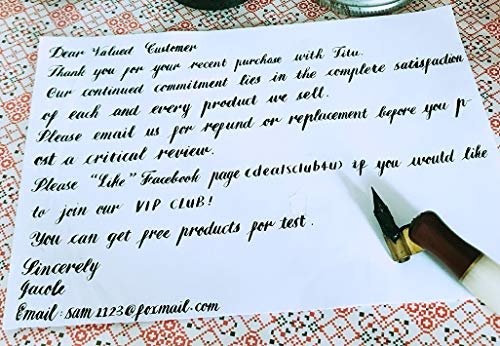 Dear Valued Customer
Thank you for your recent purchase with Titu.
Our continued commitment lies in the complete satisfaction
of each and every product we sell.
Please email us for refund or replacement before you p
ost a critical review.
Please "Like" Facebook page (dealsclub4u) if you would like
to join our VIP CLUB!
You can get free products for test.
Sincerely
Jacob
Email: sam1123@foxmail.com